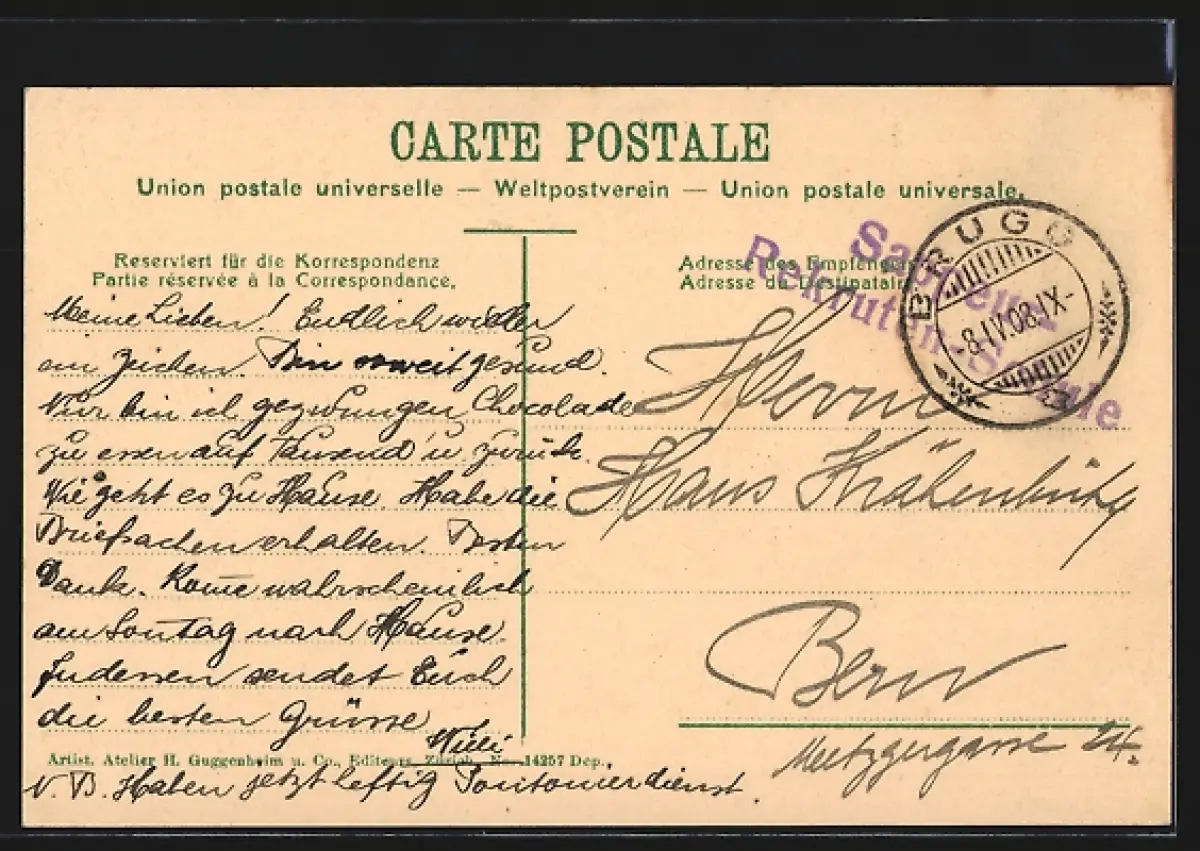 CARTE POSTALE
Union postale universelle — Weltpostverein — Union postale universale.
Reserviert für die Korrespondenz
Partie réservée à la Correspondance.
Meine Lieben! Endlich wieder
ein Zeichen. Bin soweit gesund.
Nur bin ich gezwungen Chocolade
zu essen auf Tausend u. zurück.
Wie geht es zu Hause. Habe die
Briefsachen erhalten. Besten
Dank. Kome wahrscheinlich
am Sontag nach Hause.
Indessen sendet Euch
die besten Grüsse
Willi
Artist. Atelier H. Guggenheim u. Co., Editeurs, Zürich, No. 14257 Dep.
N.B. Haben jetzt heftig Pontonierdienst.
Adresse des Empfängers
Adresse du Destinataire
Sappeur
Rekruten-Schule
BRUGG
8.IX.08.IX-
Herrn
Hans Krähenbühl
Bern
Metzgergasse 24.